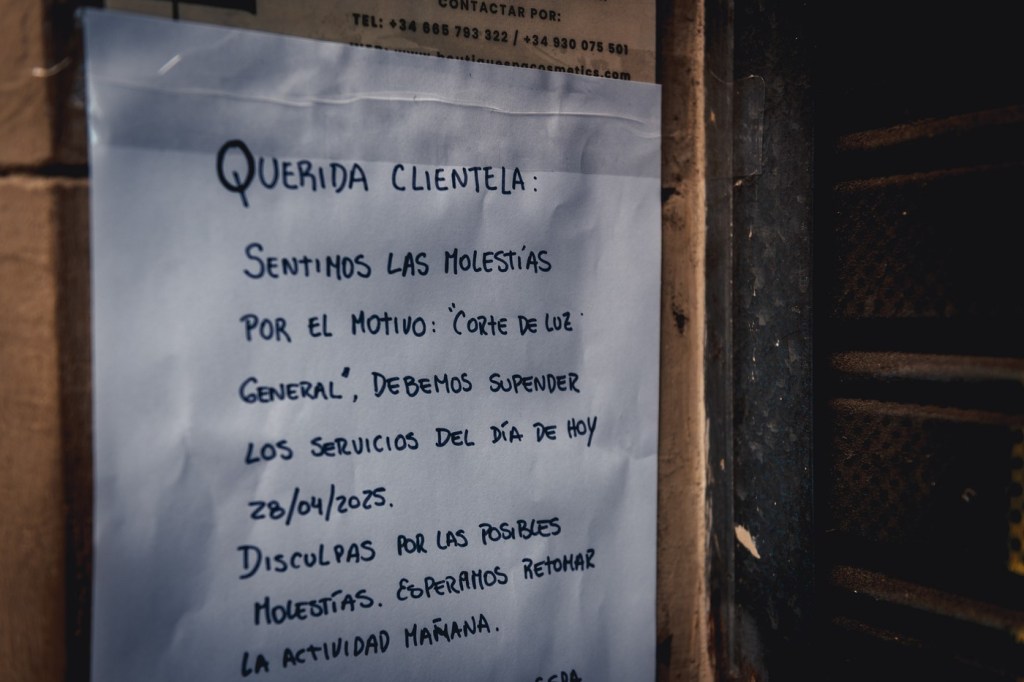 CONTACTAR POR:
TEL: +34 665 793 322 / +34 930 075 501
QUERIDA CLIENTELA:
SENTIMOS LAS MOLESTÍAS
POR EL MOTIVO: "CORTE DE LUZ
GENERAL", DEBEMOS SUPENDER
LOS SERVICIOS DEL DÍA DE HOY
28/04/2025.
DISCULPAS POR LAS POSIBLES
MOLESTÍAS. ESPERAMOS RETOMAR
LA ACTIVIDAD MAÑANA.